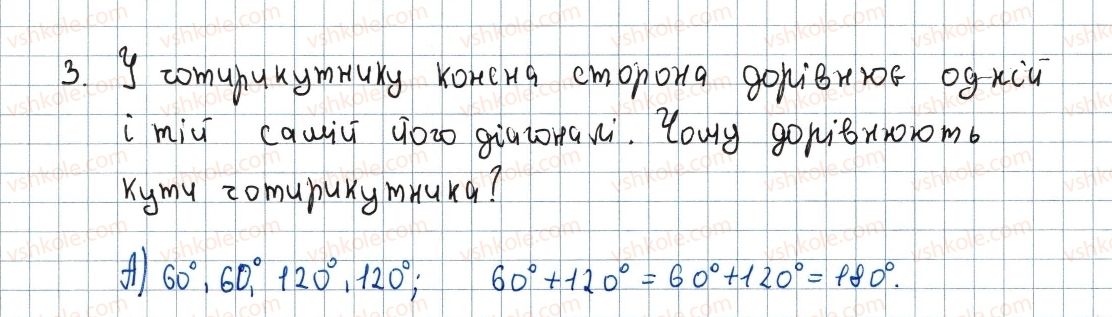 3. У чотирикутнику кожна сторона дорівнює одній
і тій самій його діагоналі. Чому дорівнюють
кути чотирикутника?
А) 60°, 60°, 120°, 120°; 60° + 120° = 60° + 120° = 180°.